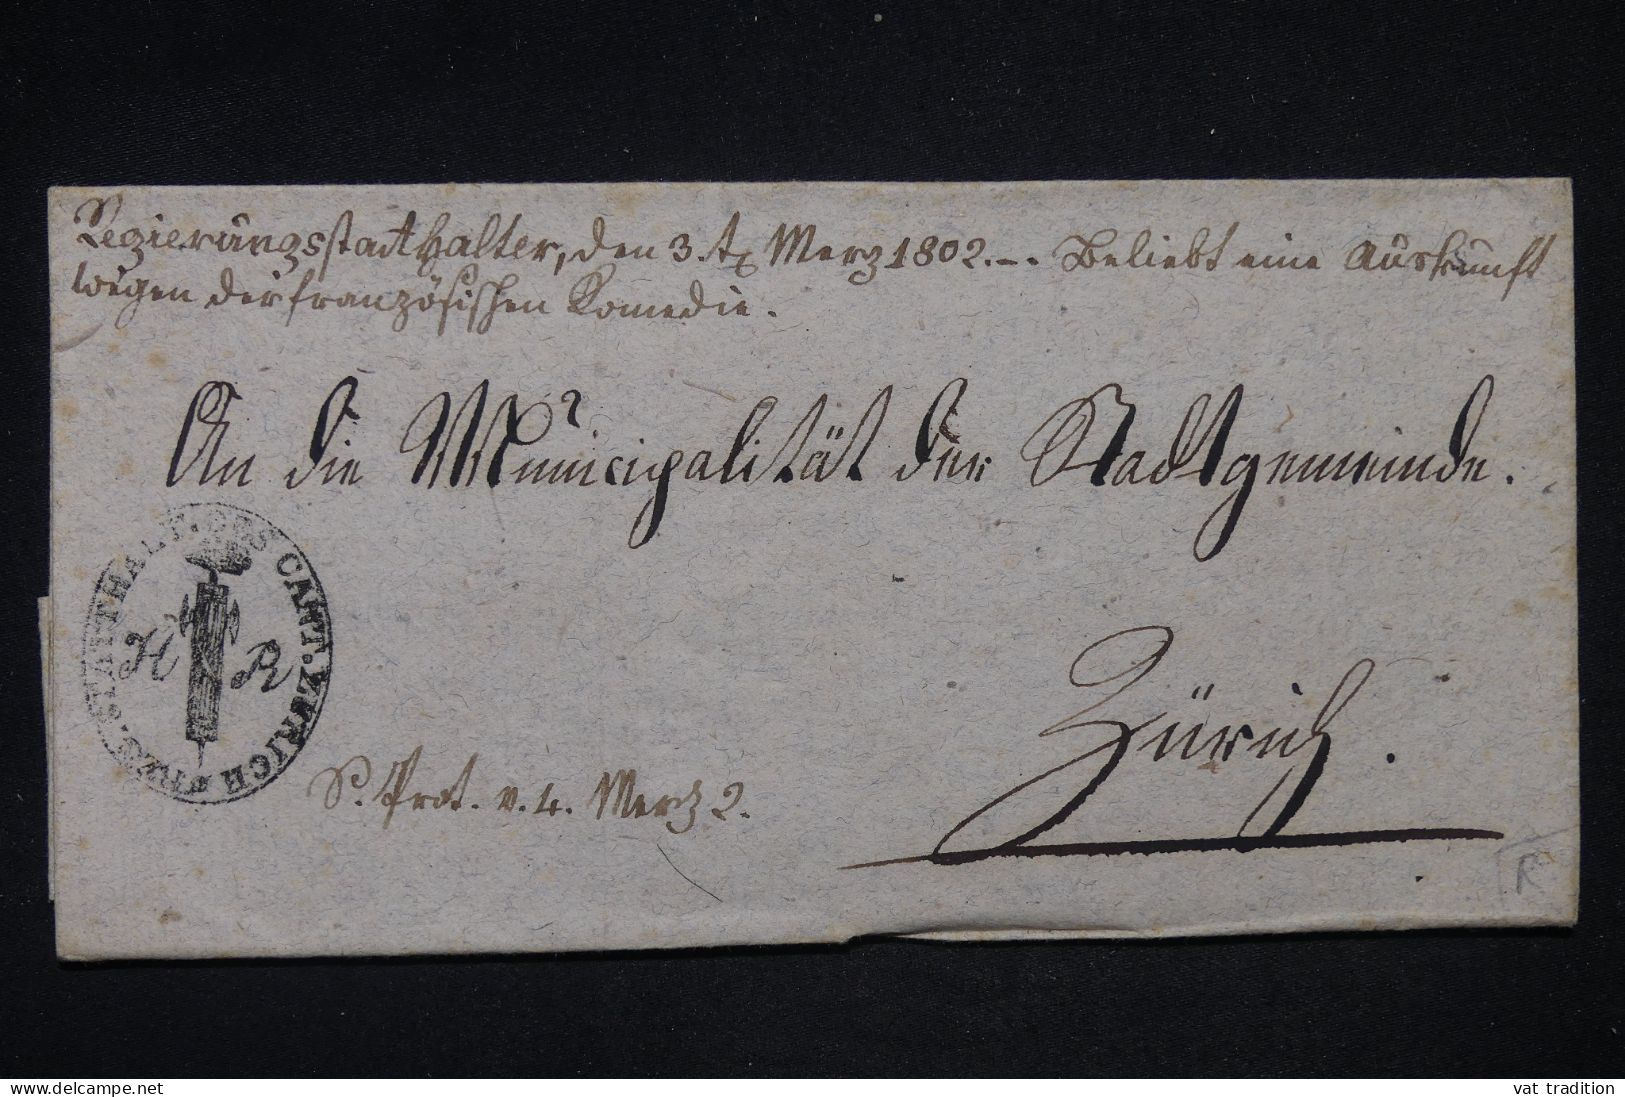 Regierungsstatthalter, den 3. t. Merz 1802. –. Beliebt eine Auskunft
wegen der französischen Komedie.
An die Municipalität der Stadtgemeinde.
STATTHALT. DES CANT. ZURICH
H R
Zürich.
S. Prot. v. 4. Merz 2.
R
www.delcampe.net
vat tradition